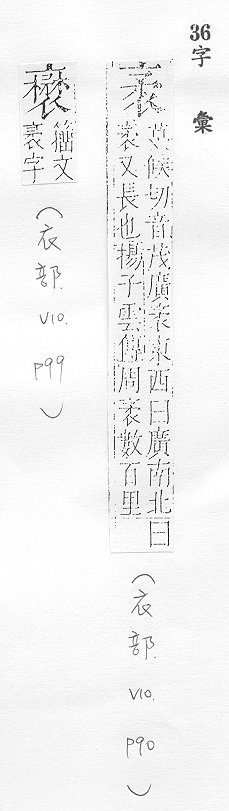 36
字彙
袤
莫候切音茂廣袤東西曰廣南北曰
袤又長也揚子雲傳周袤數百里
(衣部. V10. P90)
籀文
袤字
(衣部. V10. P99)